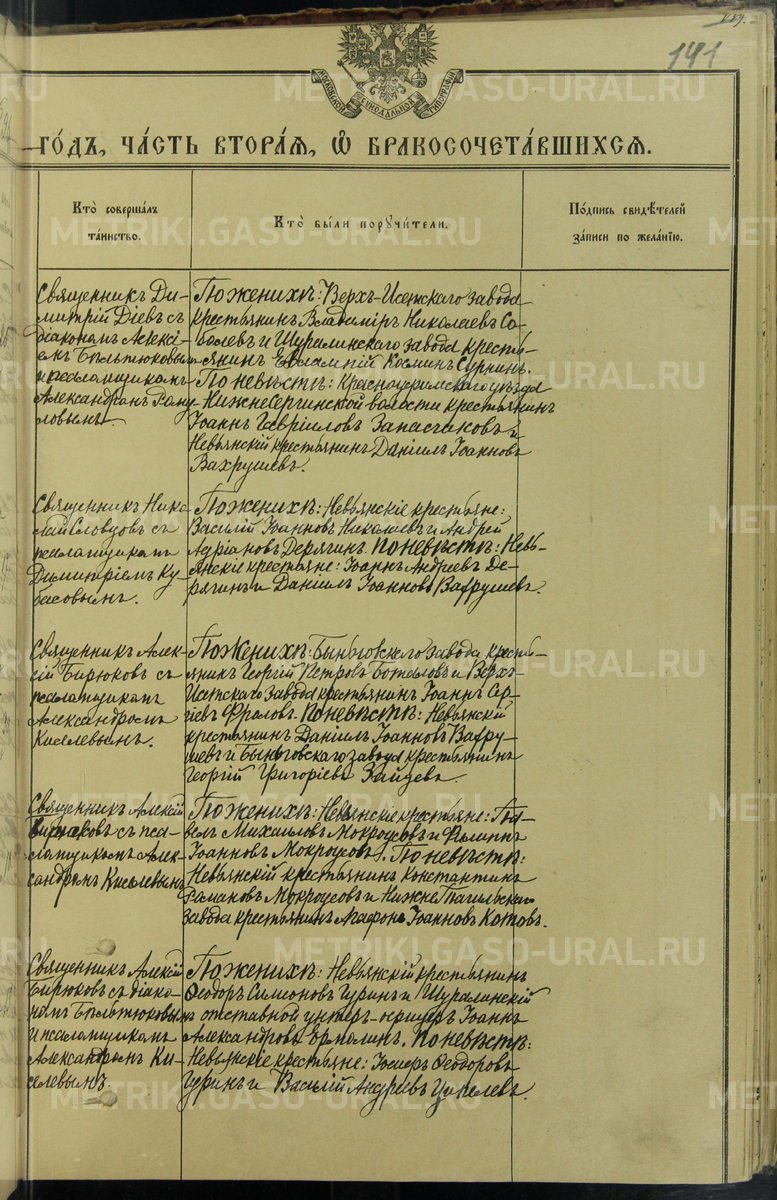 141
МОСКОВСКОЙ СѴНОДАЛЬНОЙ ТИПОГРАФІИ
ГО́ДЪ, ЧА́СТЬ ВТОРА́Ѧ, Ѡ҆ БРАКОСОЧЕТА́ВШИХСѦ.
Кто̀ соверша́лъ
та́инство.
Кто̀ бы́ли порꙋчи́тели.
По́дпись свидѣ́телей
за́писи по жела́нїю.
Священникъ Ди-
митрій Діевъ съ
діакономъ Алексі-
емъ Бѣлтюковымъ
и псаломщикомъ
Александромъ Рому-
ловымъ.
По женихѣ: Верхъ-Исетскаго завода
крестьянинъ Владиміръ Николаевъ Со-
болевъ и Шуралинскаго завода кресть-
янинъ Евлампій Космин Суринъ.
По невѣстѣ: Красноуфимскаго уѣзда
Нижнесергинской волости крестьянинъ
Іоаннъ Гавріиловъ Запасчиковъ и
Невьянскій крестьянинъ Даніилъ Іоанновъ
Вахрушевъ.
Священникъ Нико-
лай Словцовъ съ
псаломщикомъ
Димитріемъ Ку-
басовымъ.
По женихѣ: Невьянскіе крестьяне:
Василій Іоанновъ Николаевъ и Андрей
Адріановъ Дерягинъ. По невѣстѣ: Невь-
янскіе крестьяне: Іоаннъ Андреевъ Де-
рягинъ и Даніилъ Іоанновъ Вахрушевъ.
Священникъ Алек-
сій Бирюковъ съ
псаломщикомъ
Александромъ
Киселевымъ.
По женихѣ: Быньговскаго завода кресть-
янинъ Георгій Петровъ Боталовъ и Верхъ-
Исетскаго завода крестьянинъ Іоаннъ Сер-
гіевъ Фроловъ. По невѣстѣ: Невьянскій
крестьянинъ Даніилъ Іоанновъ Вахру-
шевъ и Быньговскаго завода крестьянинъ
Георгій Григоріевъ Зайцевъ.
Священникъ Алексій
Бирюковъ съ пса-
ломщикомъ Алек-
сандромъ Киселевымъ
По женихѣ: Невьянскіе крестьяне: Па-
велъ Михаиловъ Мокроусовъ и Филиппъ
Іоанновъ Мокроусовъ. По невѣстѣ:
Невьянскій крестьянинъ Константинъ
Романовъ Мокроусовъ и Нижне-Тагильскаго
завода крестьянинъ Агафонъ Іоанновъ Котовъ.
Священникъ Алексій
Бирюковъ съ діако-
номъ Бѣлтюковымъ
и псаломщикомъ
Александромъ Ки-
селевымъ.
По женихѣ: Невьянскій крестьянинъ
Ѳеодоръ Симеоновъ Гуринъ и Шуралинскій
отставной унтеръ-офицеръ Іоаннъ
Александровъ Ермолинъ. По невѣстѣ:
Невьянскіе крестьяне: Іосифъ Ѳеодоровъ
Гуринъ и Василій Андреевъ Цепелевъ.
METRIKI.GASO-URAL.RU